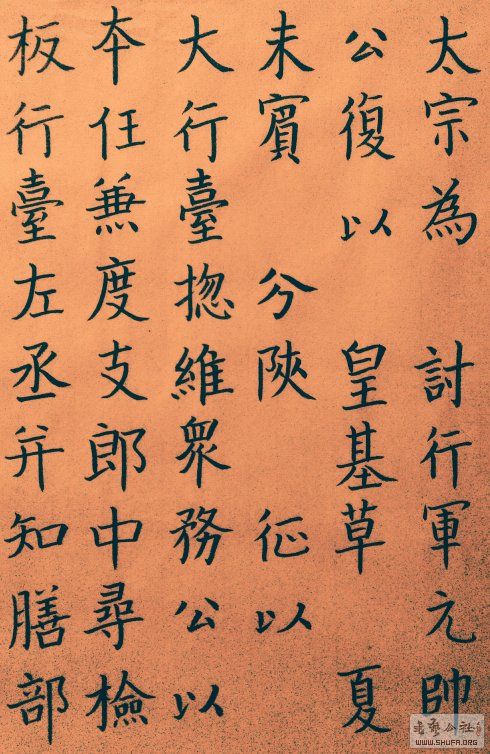 太宗為 討行軍元帥
公復以 皇基草 夏
未賓 分陝 征以
大行臺揔維眾務公以
本任兼度支郎中尋檢
板行臺左丞并知膳部
WWW.SHUFA.ORG